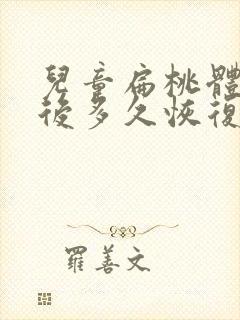 兒童扁桃體
後多久恢復
羅善文